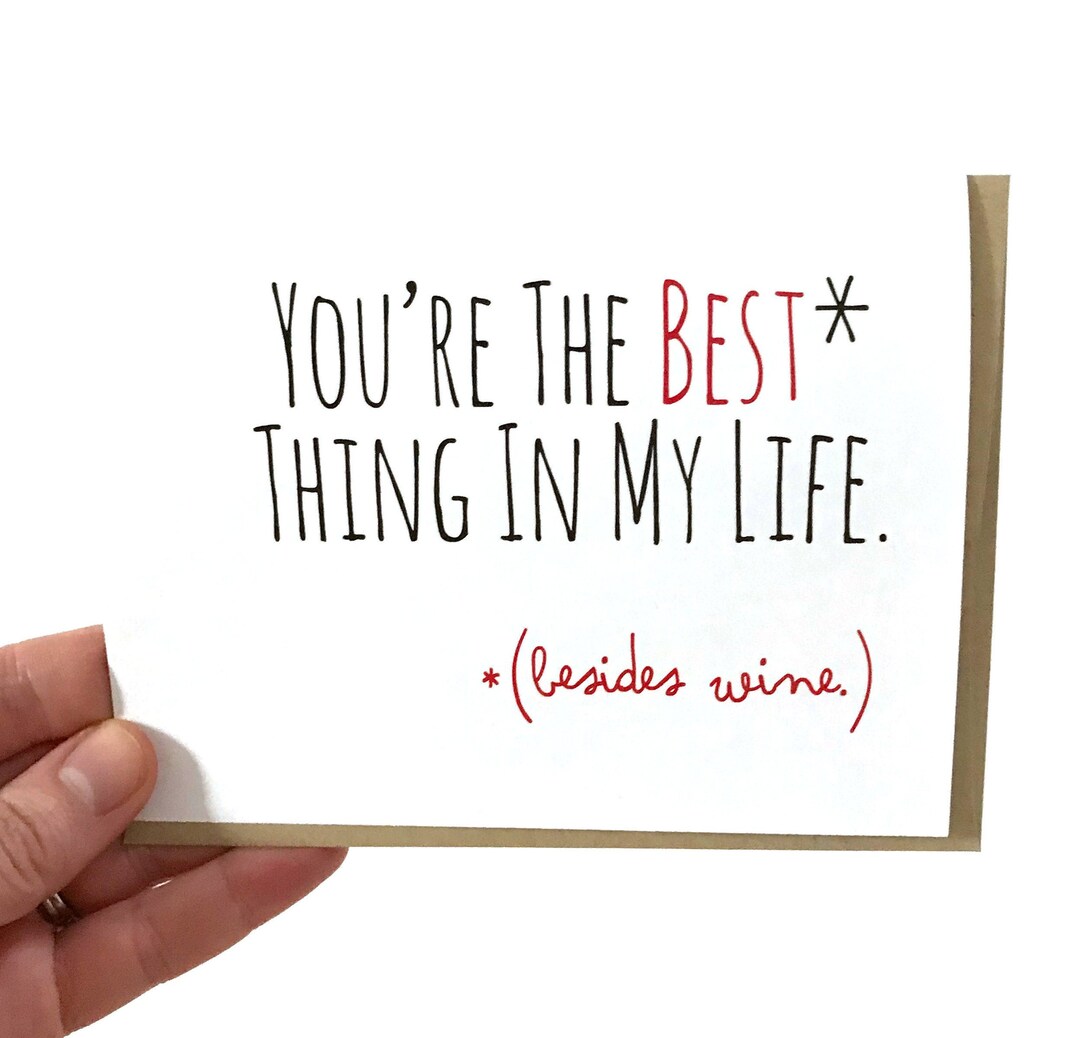 You're The Best*
Thing In My Life.
*(besides wine.)